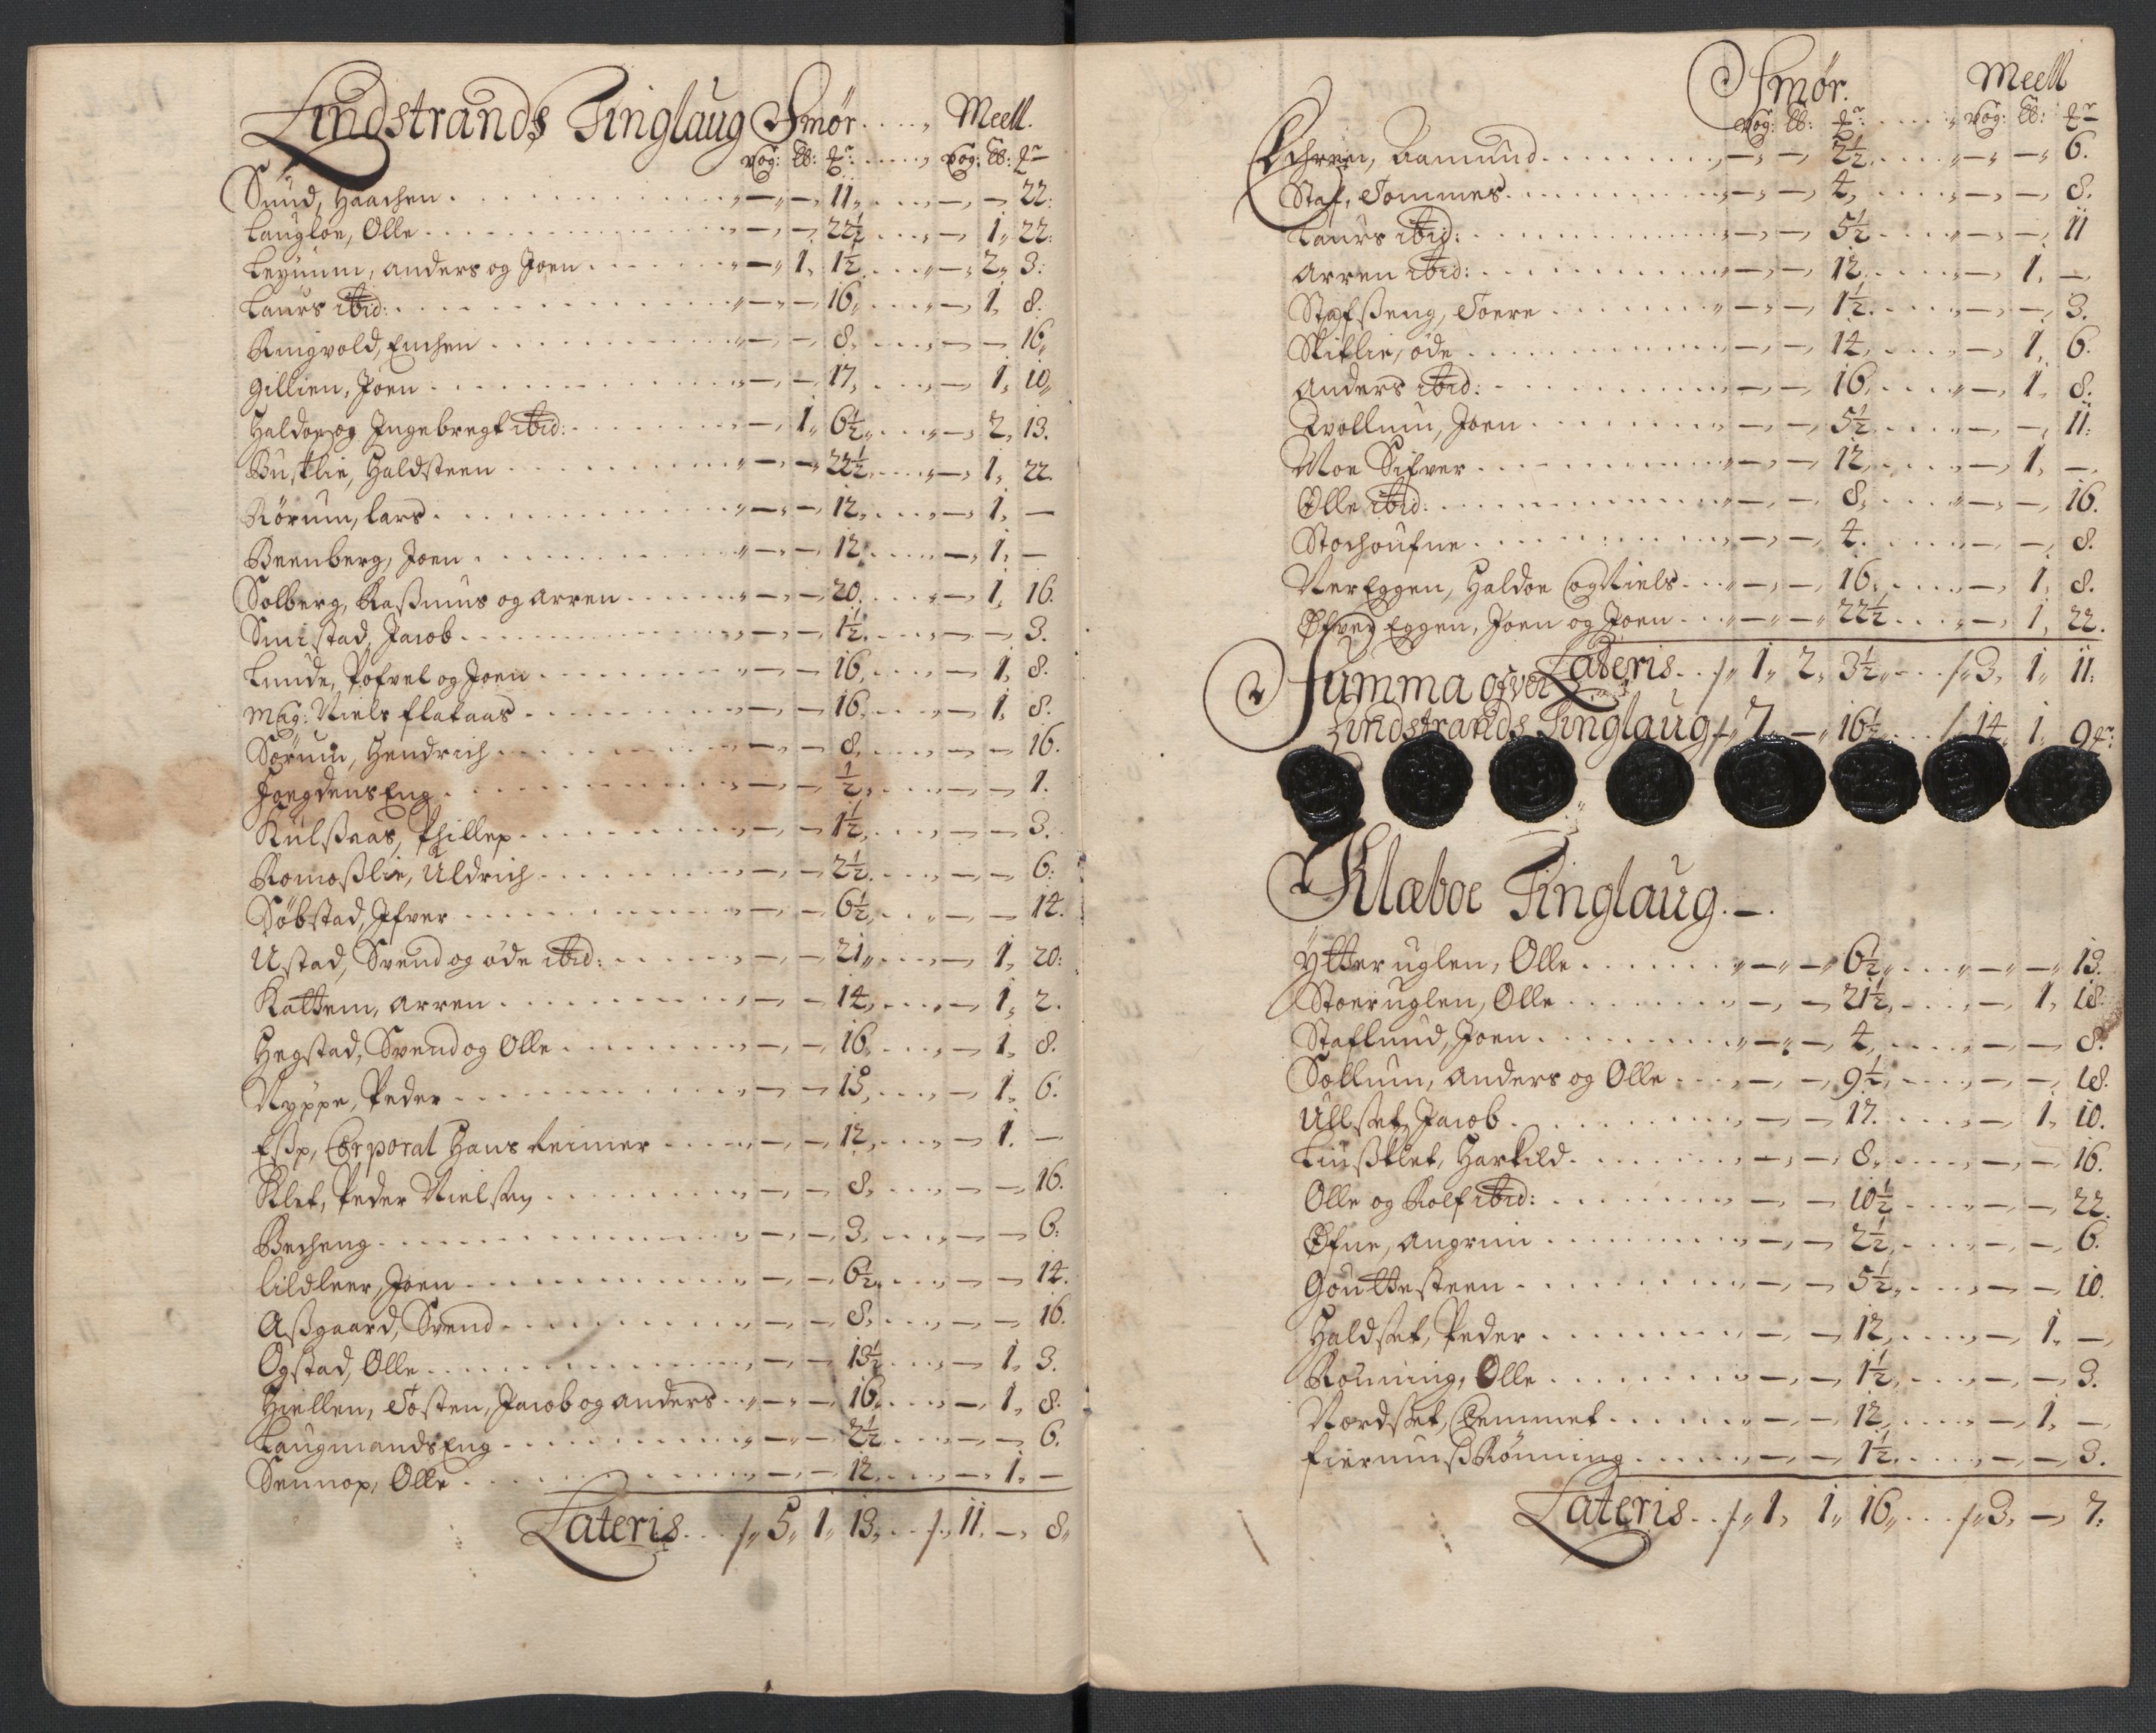 Lindstrands Tinglaug Smør . . . . , Meell.
vog: ℔: qr: . . . . . , vog: ℔: qr
Suud, Haachen . . . . — — 11, . . . — — 22:
Laugloe, Olle . . . . — — 22½ . . . — 1, 22:
Leynum, anders og Joen . . . . — 1, 1½ . . . — 2, 3:
Laurs ibid: . . . . — — 16, . . . — 1, 8:
Ringvold, Enchen . . . . — — 8, . . . — — 16,
Gillien, Joen . . . . — — 17, . . . — 1, 10,
Haldor og Ingebregt ibid: . . . . — 1, 6½, . . . — 2, 13.
Busklie, Haldsteen . . . . — — 22½, . . . — 1, 22.
Rørum, Lars . . . . — — 12, . . . — 1, —
Beenberg, Joen . . . . — — 12, . . . — 1, —
Solberg, Rasmus og Arren . . . . — — 20. . . . — 1, 16.
Smistad, Jacob . . . . — — 1½. . . . — — 3.
Lunde, Pofvel og Joen . . . . — — 16, . . . — 1, 8.
Mag: Niels flataas . . . . — — 16, . . . — 1, 8.
Sørum, Hendrich . . . . — — 8, . . . — — 16.
Joegdens Eng . . . . — — ½, . . . — — 1.
Kulsaas, Phillep . . . . — — 1½, . . . — — 3.
Romoslie, Uldrich . . . . — — 2½. . . . — — 6:
Søbstad, Ifver . . . . — — 6½, . . . — — 14.
Ustad, Svend og øde ibid: . . . . — — 21, . . . — 1, 20:
Kattem, Arren . . . . — — 14, . . . — 1, 2.
Hegstad, Svend og Olle . . . . — — 16, . . . — 1, 8.
Nyppe, Peder . . . . — — 15, . . . — 1, 6.
Esp, Corporal Hans Reimer . . . . — — 12, . . . — 1. —
Klet, Peder Nielsen . . . . — — 8, . . . — — 16.
Becheng . . . . — — 3, . . . — — 6:
Lildleer, Joen . . . . — — 6½, . . . — — 14.
Asgaard, Svend . . . . — — 8, . . . — — 16.
Ogstad, Olle . . . . — — 13½ . . . — 1, 3.
Hiellen, Tosten, Jacob og anders . . — — 16, . . . — 1, 8.
Laugmands Eng . . . . — — 2½ . . . — — 6.
Sennop, Olle . . . . — — 12, . . . — 1, —
Lateris . . . 5, 1, 13, . . . 11. —, 8,
Smør. Meell
vog: ℔: qr: . . . . , vog: ℔: qr
Aamund . . . . — — 2½. . . . — — 6.
Staf, Tommes . . . . — — 4, . . . — — 8.
Laurs ibid: . . . . — — 5½ . . . — — 11
Arren ibid: . . . . — — 12, . . . — 1, —
Stafseng, Toere . . . . — — 1½. . . . — — 3.
Skitlie, øde . . . . — — 14, . . . — 1, 6.
Anders ibid: . . . . — — 16, . . . — 1, 8.
Tvollum, Joen . . . . — — 5½, . . . — — 11:
Moe Sifver . . . . — — 12, . . . — 1, —
Olle ibid: . . . . — — 8, . . . — — 16.
Stochoufne . . . . — — 4. . . . — — 8.
Ner Eggen, Haldoe og Niels . . — — 16, . . . — 1, 8.
Øfver Eggen, Joen og Joen . . . — — 22½ . . . — 1, 22.
Lateris . . 1, 2, 3½, . . . 3, 1, 11:
Summa ofver
Lindstrands Tinglaug 7, —, 16½, . . . 14, 1, 9 qr:
Klæboe Tinglaug. —.
Ytter uglen, Olle . . . . — — 6½, . . . — — 13.
Stoer uglen, Olle . . . . — — 21½, . . . — 1, 18.
Staflund, Joen . . . . — — 4, . . . — — 8.
Sollum, Anders og Olle . . . — — 9½, . . . — — 18.
Ullset, Jacob . . . . — — 17. . . . — 1, 10.
Harkild . . . . — — 8, . . . — — 16.
Olle og Rolf ibid: . . . . — — 10½ . . . — — 22.
Øfne, Angrim . . . . — — 2½, . . . — — 6.
Gouttesteen . . . . — — 5½, . . . — — 10.
Haldset, Peder . . . . — — 12, . . . — 1, —
Rønning, Olle . . . . — — 1½, . . . — — 3.
Nordset, Clemmet . . . . — — 12, . . . — 1, —
Fiernums Rønning . . . . — — 1½, . . . — — 3.
Lateris . . 1, 1, 16, . . . 3, —, 7: